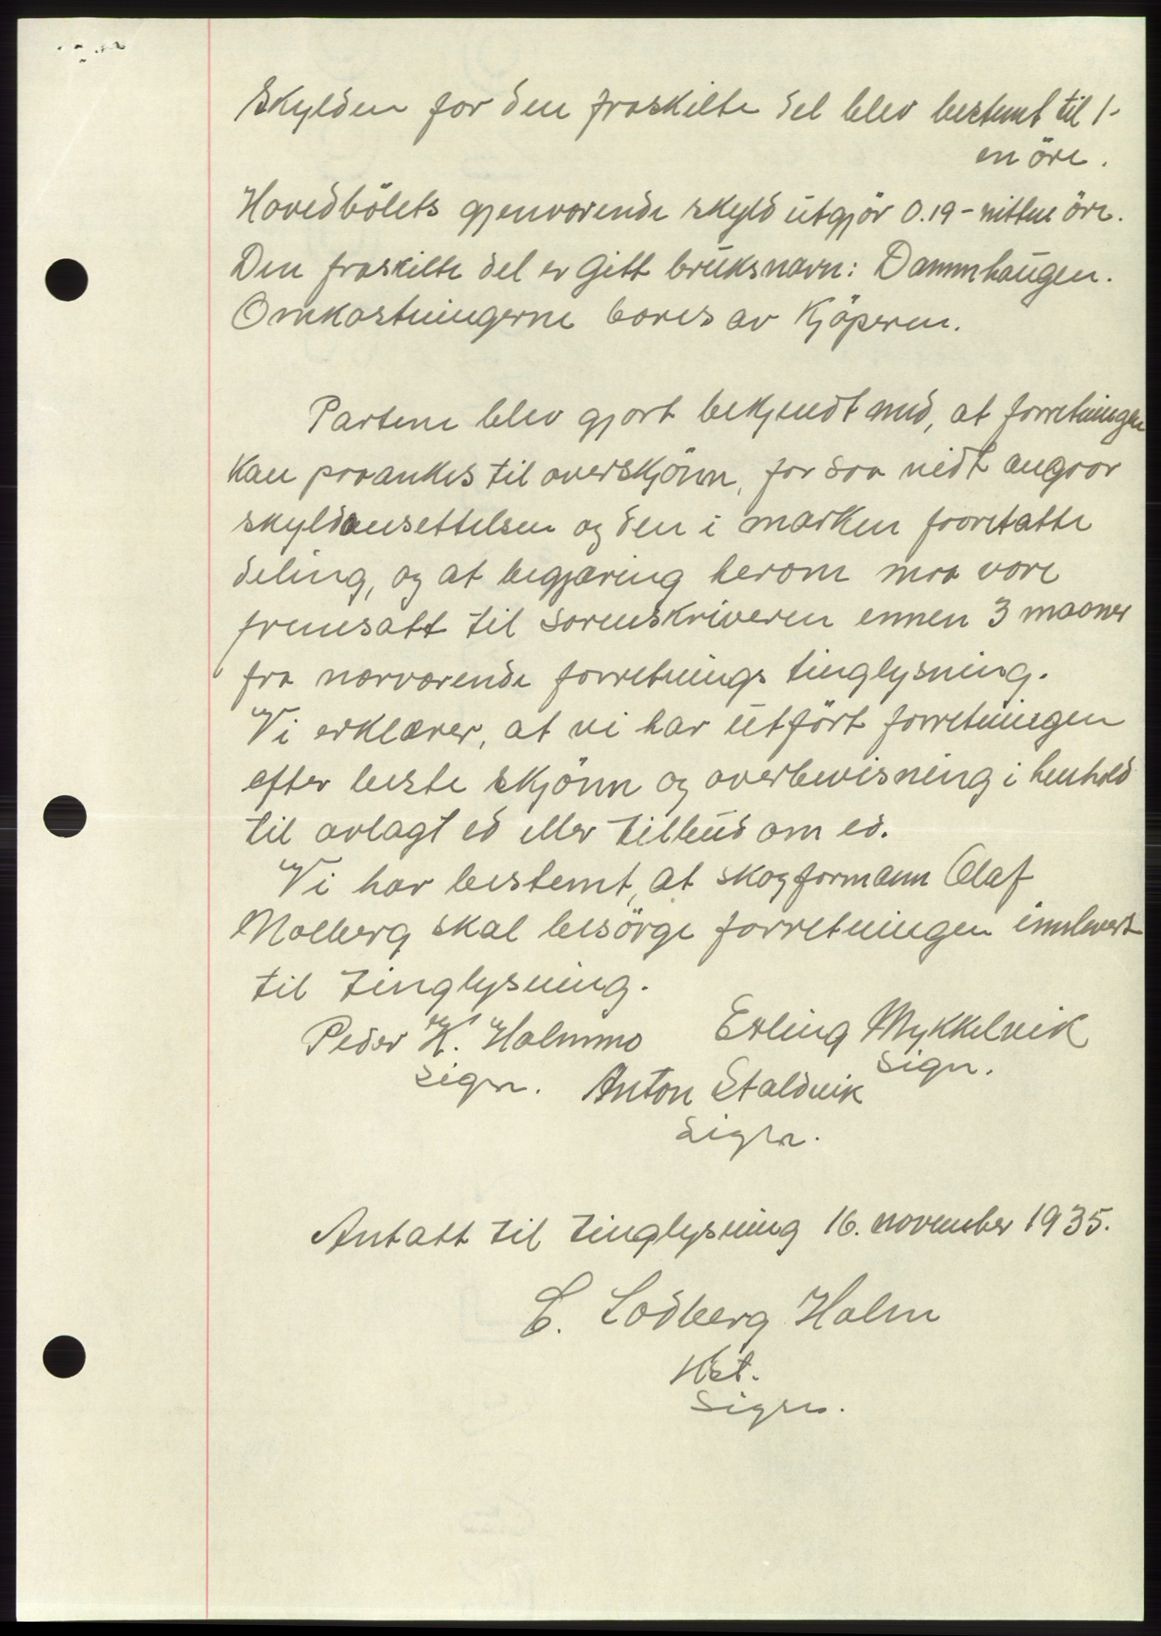 Skylden for den fraskilte del blev bestemt til 1-
en öre.
Hovedbölets gjenværende skyld utgjör 0.19 - nitten öre.
Den fraskilte del er gitt bruksnavn: Dammhaugen.
Omkostningerne bæres av Kjöperen.
Partene blev gjort bekjendt med, at forretningen
kan paaankes til overskjönn, for saa vidt angaar
skyldansettelsen og den i marken foretatte
deling, og at begjæring herom maa være
fremsatt til sorenskriveren innen 3 maaner
fra nærværende forretnings tinglysning.
Vi erklærer, at vi har utfört forretningen
efter beste skjönn og overbevisning i henhold
til avlagt ed eller tilbud om ed.
Vi har bestemt, at skogformann Olaf
Molberg skal besörge forretningen innlevert
til tinglysning.
Peder K. Holmmo Erling Mykkelvik
sign. sign.
Anton Staldvik
sign.
Antatt til tinglysning 16. november 1935.
C. Lodberg Holm
Kst.
sign.